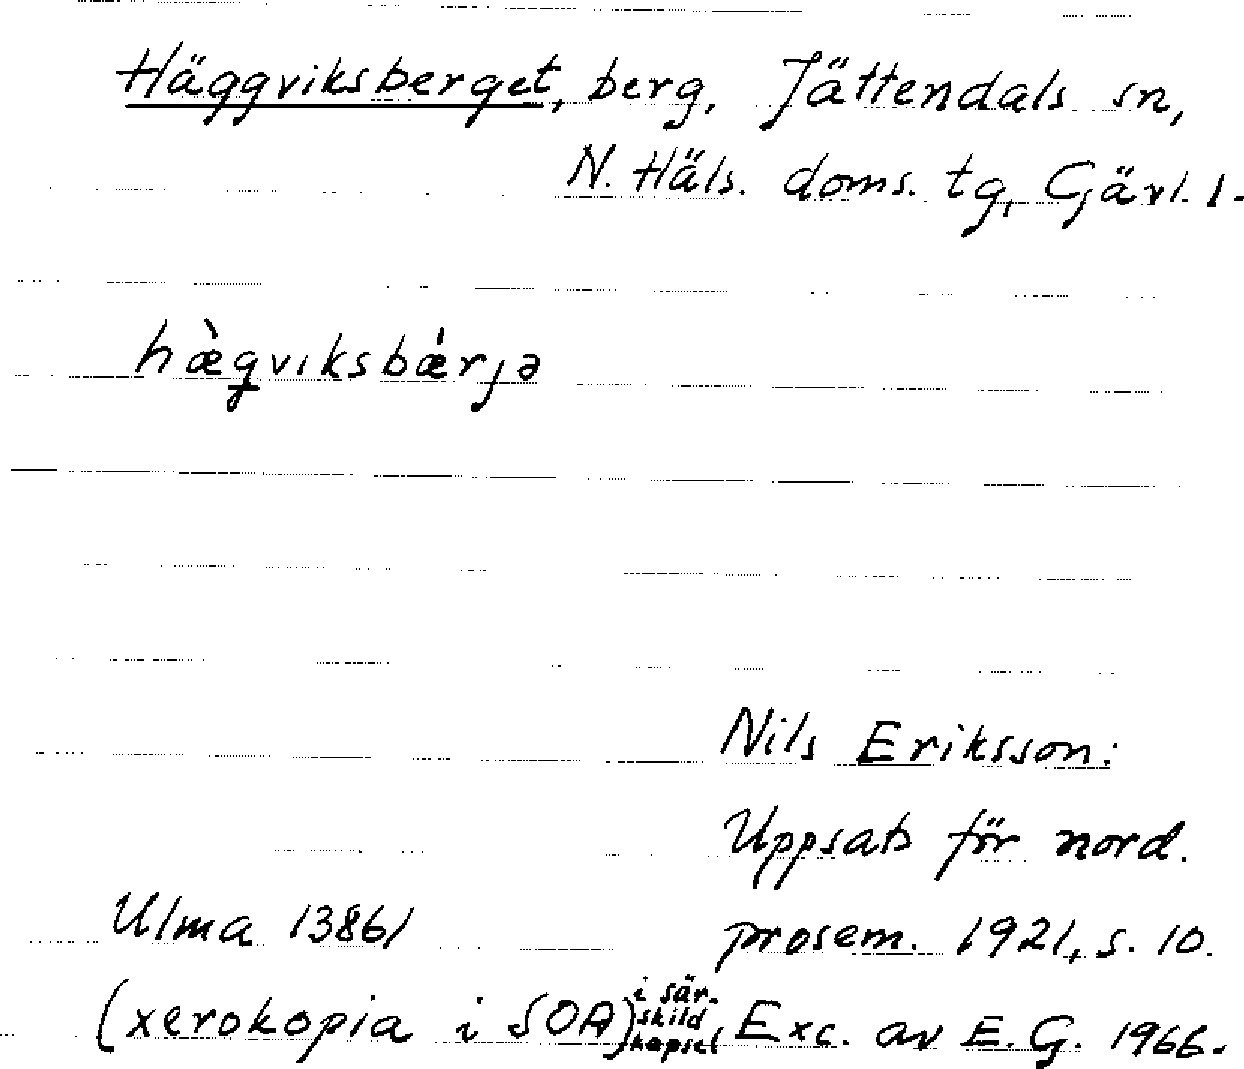 Häggviksberget, berg, Jättendals sn,
N. Häls. doms. tg, Gävl. l.
hæ̀gviksbǽrjə
Nils Eriksson:
Uppsats för nord.
Ulma 13861 prosem. 1921, s. 10.
(xerokopia i SOA) i sär-
skild
kapsel, Exc. av E. G. 1966.